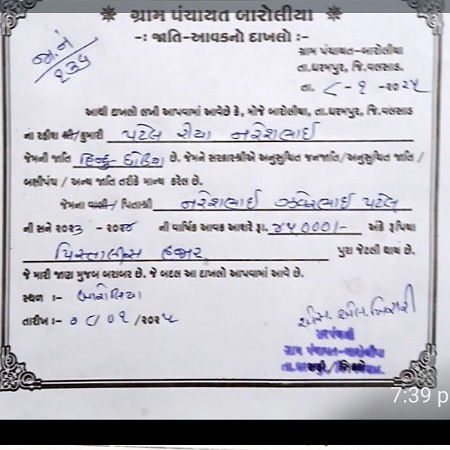 ❋ ગ્રામ પંચાયત બારોલીયા ❋
-: જાતિ-આવકનો દાખલો :-
જા.નં
૨૩૫
ગ્રામ પંચાયત-બારોલીયા
તા.ધરમપુર, જિ.વલસાડ
તા. ૮-૧ -૨૦૨૫
આથી દાખલો લખી આપવામાં આવેછે કે, મોજે બારોલીયા, તા.ધરમપુર, જિ.વલસાડ
ના રહીશ શ્રી/કુમારી પટેલ રીયા નરેશભાઈ
જેમની જાતિ હિન્દુ-ધોડિયા છે. જેમને સરકારશ્રીએ અનુસુચિત જનજાતિ/અનુસુચિત જાતિ /
બક્ષીપંચ / અન્ય જાતિ તરીકે માન્ય કરેલ છે.
જેમના વાલી/ પિતાશ્રી નરેશભાઈ ઝવેરભાઈ પટેલ
ની સને ૨૦૨૩ -૨૦૨૪ ની વાર્ષિક આવક આશરે રૂા. ૪૫૦૦૦/- અંકે રૂપિયા
પિસ્તાલીસ હજાર પુરા જેટલી થાય છે.
જે મારી જાણ મુજબ બરાબર છે. જે બદલ આ દાખલો આપવામાં આવે છે.
સ્થળ :- બારોલિયા
તારીખ :- ૦૮/૦૧ /૨૦૨૫
સરપંચશ્રી
ગ્રામ પંચાયત-બારોલીયા
તા.ધરમપુર, જિ.વલસાડ.
7:39 p